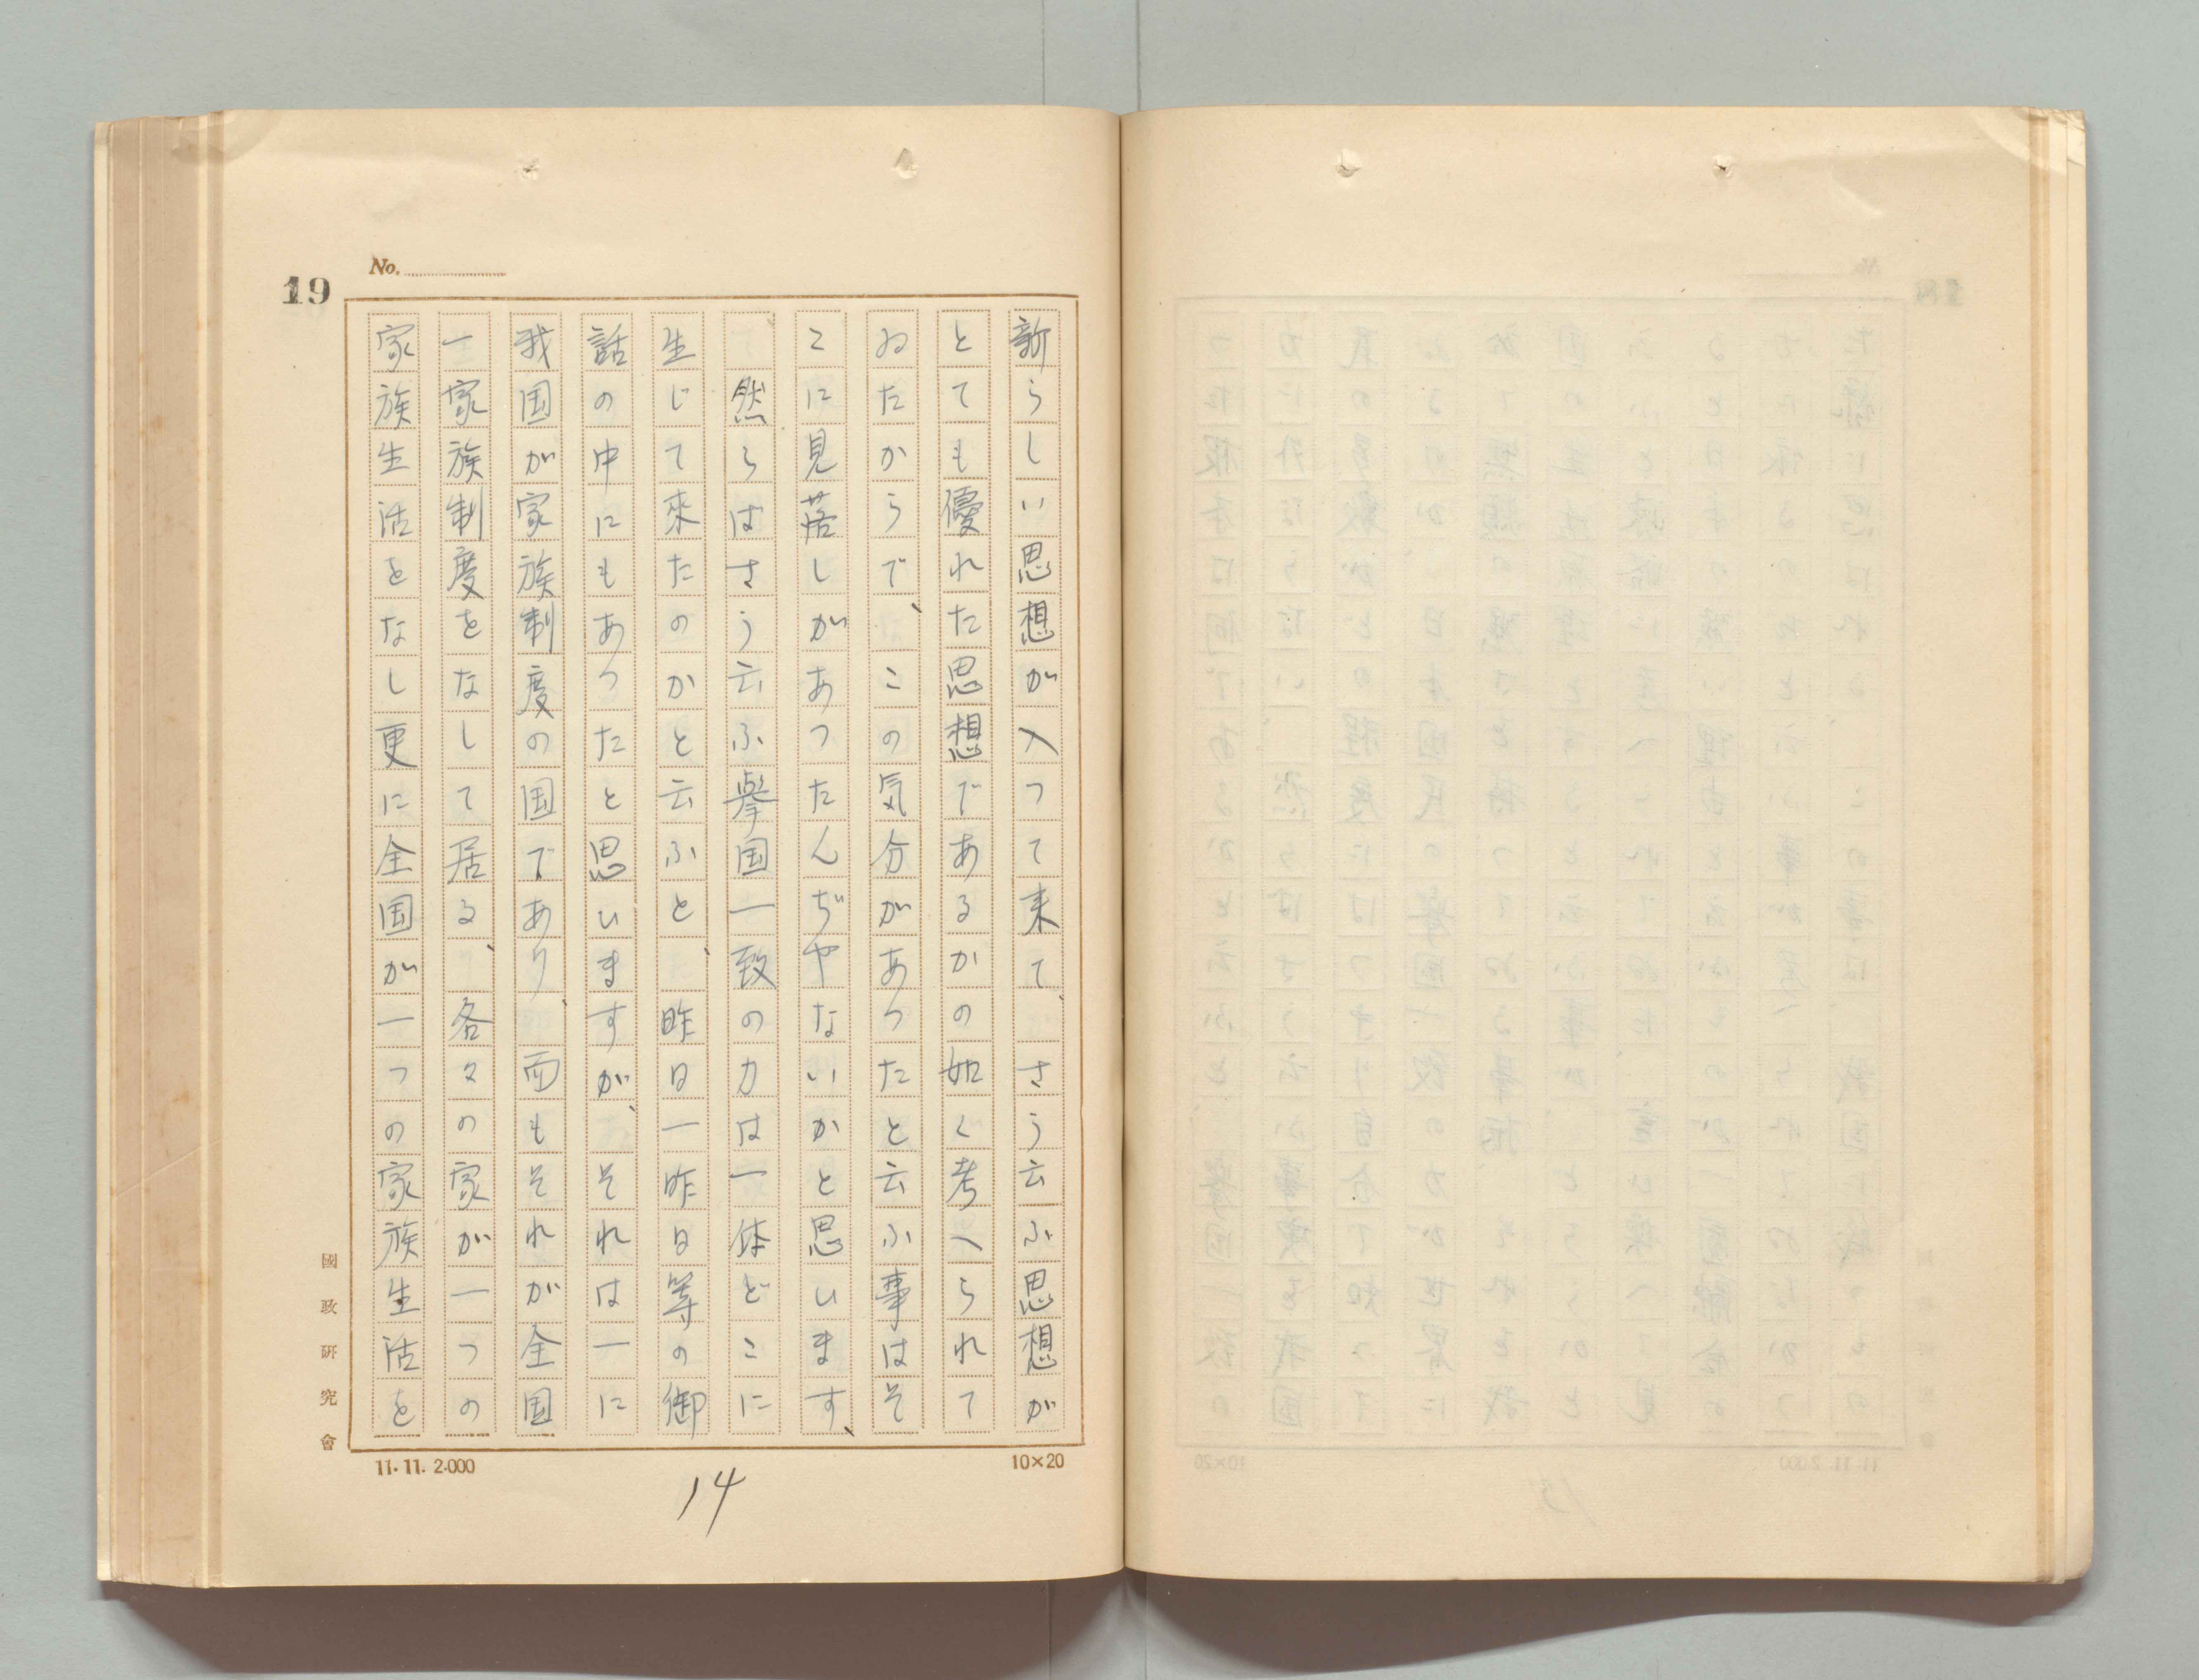 No.
19
新らしい思想が入つて来て、さう云ふ思想が
とても優れた思想であるかの如く考へられて
ゐたからで、この気分があつたと云ふ事はそ
こに見落しがあつたんぢやないかと思ひます、
然らばさう云ふ擧国一致の力は一体どこに
生じて來たのかと云ふと、昨日一昨日等の御
話の中にもあつたと思ひますが、それは一に
我国が家族制度の国であり、而もそれが全国
一家族制度をなして居る、各々の家が一つの
家族生活をなし更に全国が一つの家族生活を
國政研究會
11.11.2.000
10×20
14